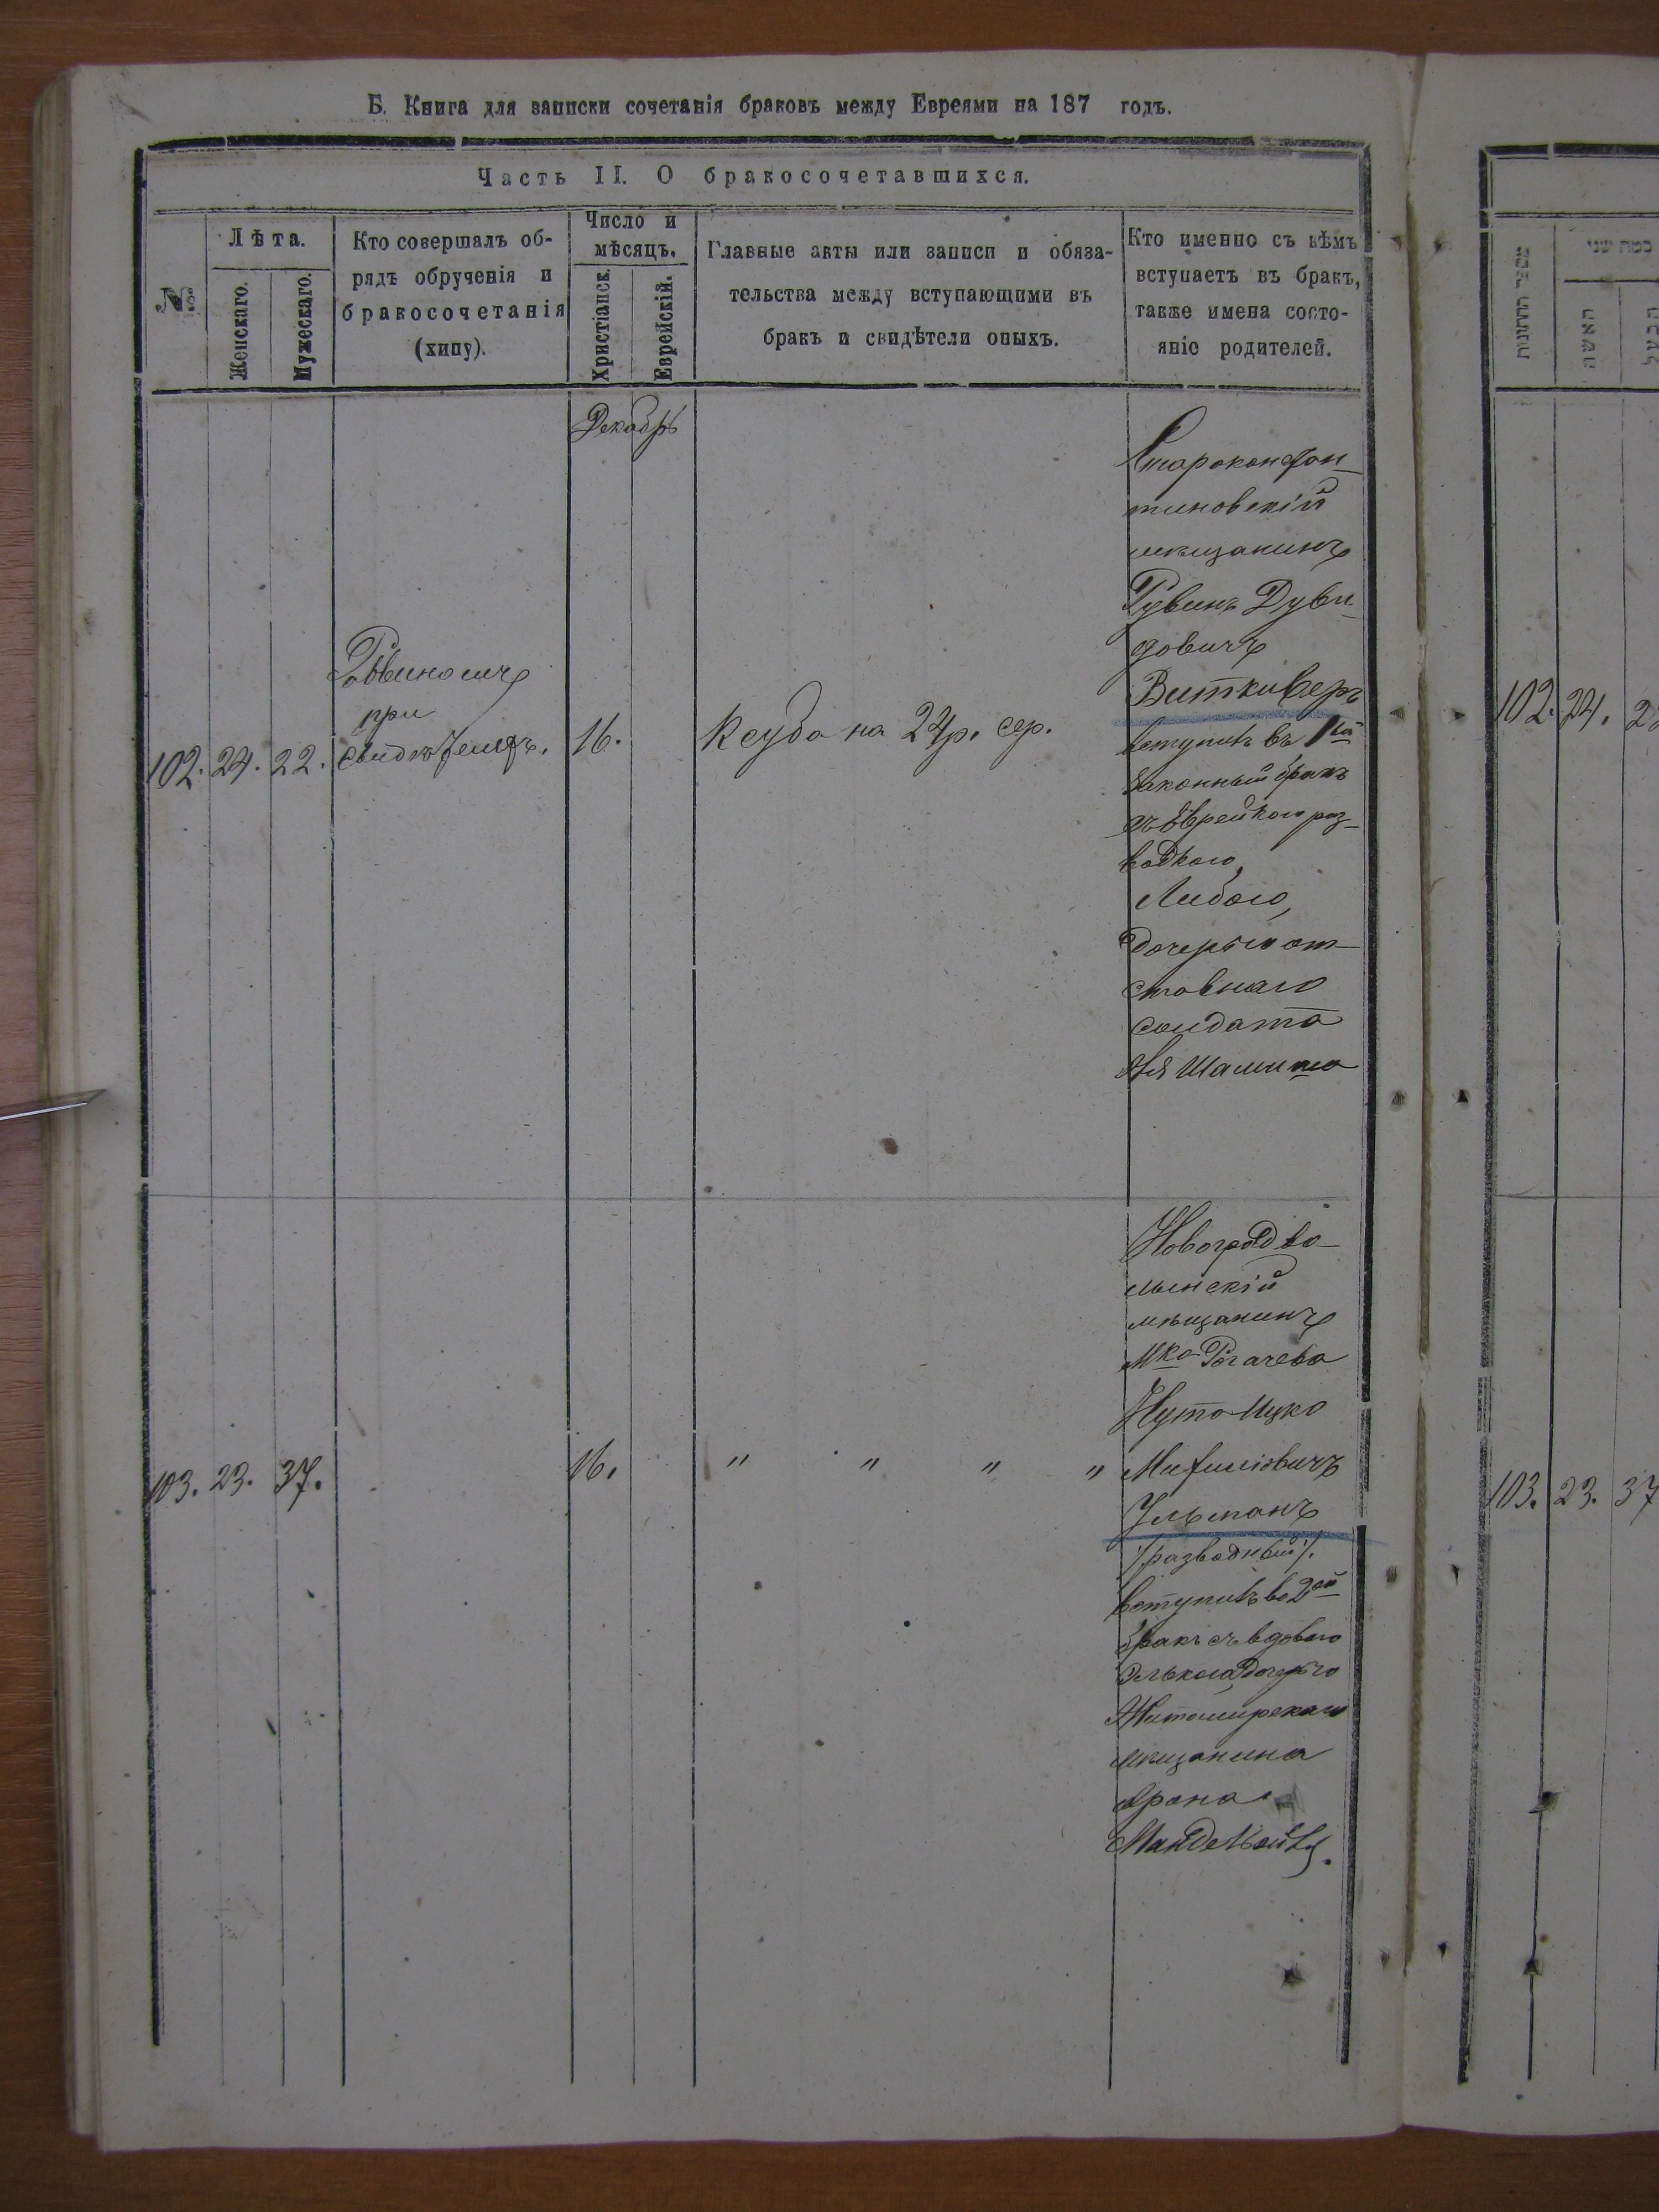 Б. Книга для записки сочетанія браковъ между Евреями на 187 годъ.
Часть II. О бракосочетавшихся.
№
Лѣта.
Женскаго.
Мужескаго.
Кто совершалъ об-
рядъ обрученія и
бракосочетанія
(хипу).
Число и
мѣсяцъ.
Христіанск.
Еврейскій.
Главные акты или записи и обяза-
тельства между вступающими въ
бракъ и свидѣтели оныхъ.
Кто именно съ кѣмъ
вступаетъ въ бракъ,
также имена состо-
яніе родителей.
Декабрь
102. 24. 22.
Раввиномъ
при
свидѣтеляхъ.
16.
Ксуба на 24р. сер.
Староконстан-
тиновскій
мѣщанинъ
Рувинъ Дуви-
довичъ
Виткиверъ
вступилъ въ 1ый
законный бракъ
съ Еврейкою раз-
водкою,
Либою,
дочерью от-
ставнаго
солдата
103. 23. 37.
16.
" " " "
Новоградво-
лынскій
мѣщанинъ
Мка Рогачева
Нута Ицко
Ульманъ
/разводный/.
вступилъ во 2ой
бракъ съ вдовою
Элькою, дочерью
Житомирскаго
мѣщанина
Арона
כמה שני
האשה
הבעל
102. 24. 22
103. 23. 37